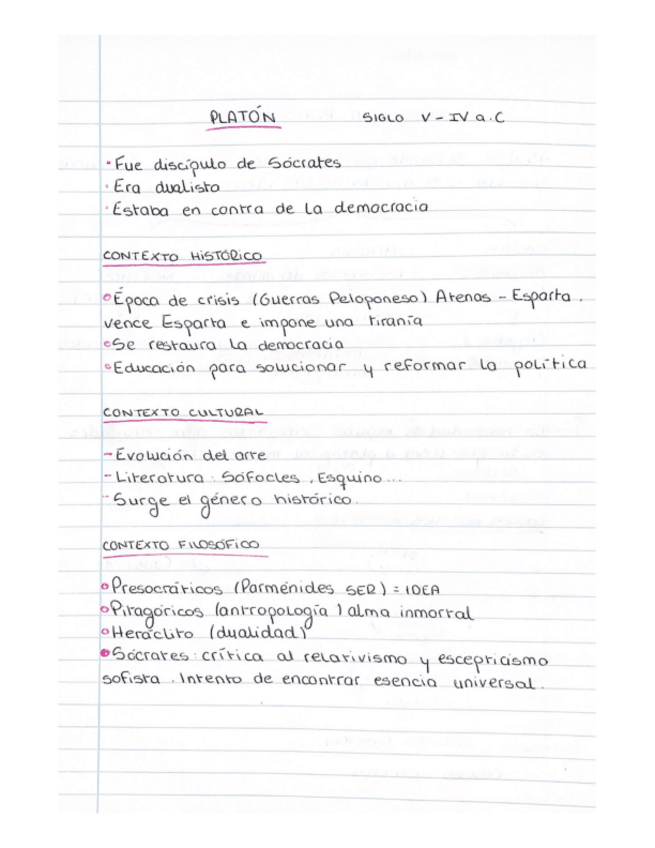 PLATÓN SIGLO V - IV a.C
· Fue discípulo de Sócrates
· Era dualista
· Estaba en contra de la democracia
CONTEXTO HISTÓRICO
• Época de crisis (Guerras Peloponeso) Atenas - Esparta.
vence Esparta e impone una tiranía
• Se restaura la democracia
• Educación para solucionar y reformar la política
CONTEXTO CULTURAL
- Evolución del arte
- Literatura: Sófocles, Esquino...
- Surge el género histórico.
CONTEXTO FILOSÓFICO
• Presocráticos (Parménides SER) = IDEA
• Pitagóricos (antropología) alma inmortal
• Heráclito (dualidad)
• Sócrates: crítica al relativismo y escepticismo
sofista. Intento de encontrar esencia universal.